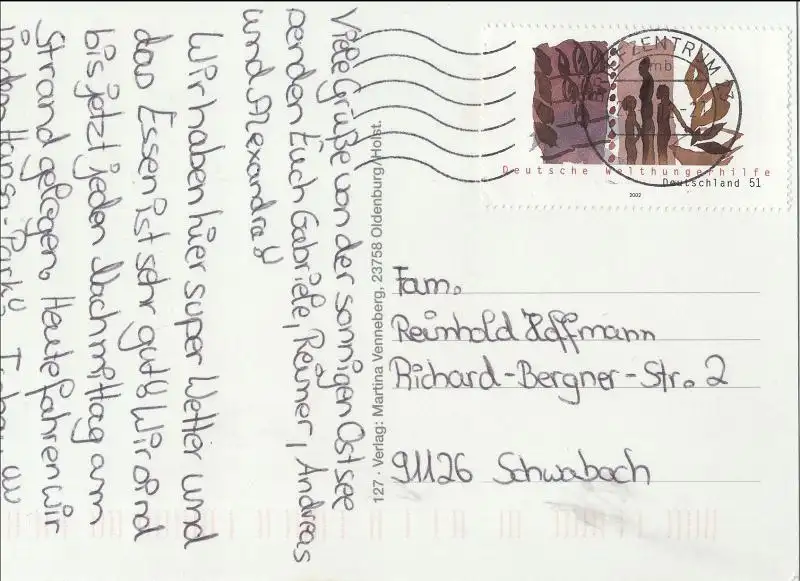 Viele Grüße von der sonnigen Ostsee
senden Euch Gabriele, Reiner, Andreas
und Alexandra!
Wir haben hier super Wetter und
das Essen ist sehr gut! Wir sind
bis jetzt jeden Nachmittag am
Strand gelegen. Heute fahren wir
in den Hansa-Park!
127 · Verlag: Martina Venneberg, 23758 Oldenburg/Holst.
FZENTRUM
Deutsche Welthungerhilfe
Deutschland 51
2002
Fam.
Reinhold Hoffmann
Richard-Bergner-Str. 2
91126 Schwabach